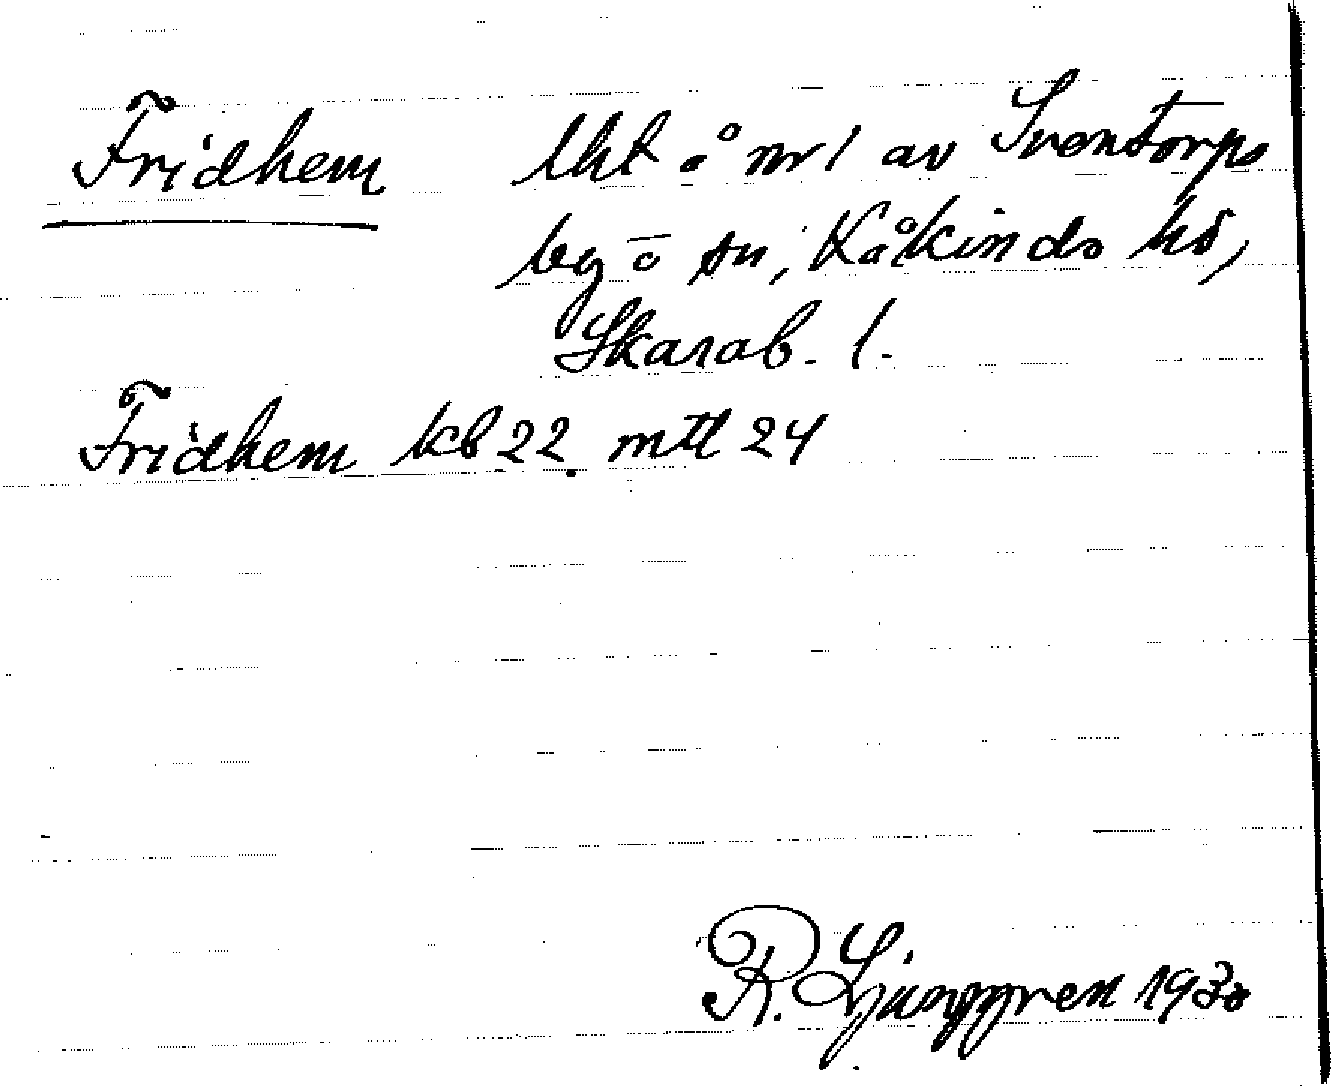 Fridhem lht å nr 1 av Sventorps
bg o sn, Kåkinds hd,
Skarab. l.
Fridhem kb 22 mtl 24
R. Ljunggren 1930